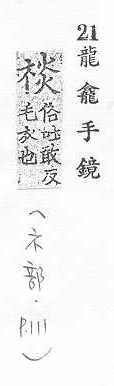 21龍龕手鏡
俗吐敢反
毛衣也
(礻部·P.111)